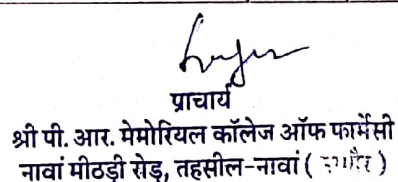 प्राचार्य
श्री पी. आर. मेमोरियल कॉलेज ऑफ फार्मेसी
नावां मीठड़ी रोड़, तहसील-नावां ( )